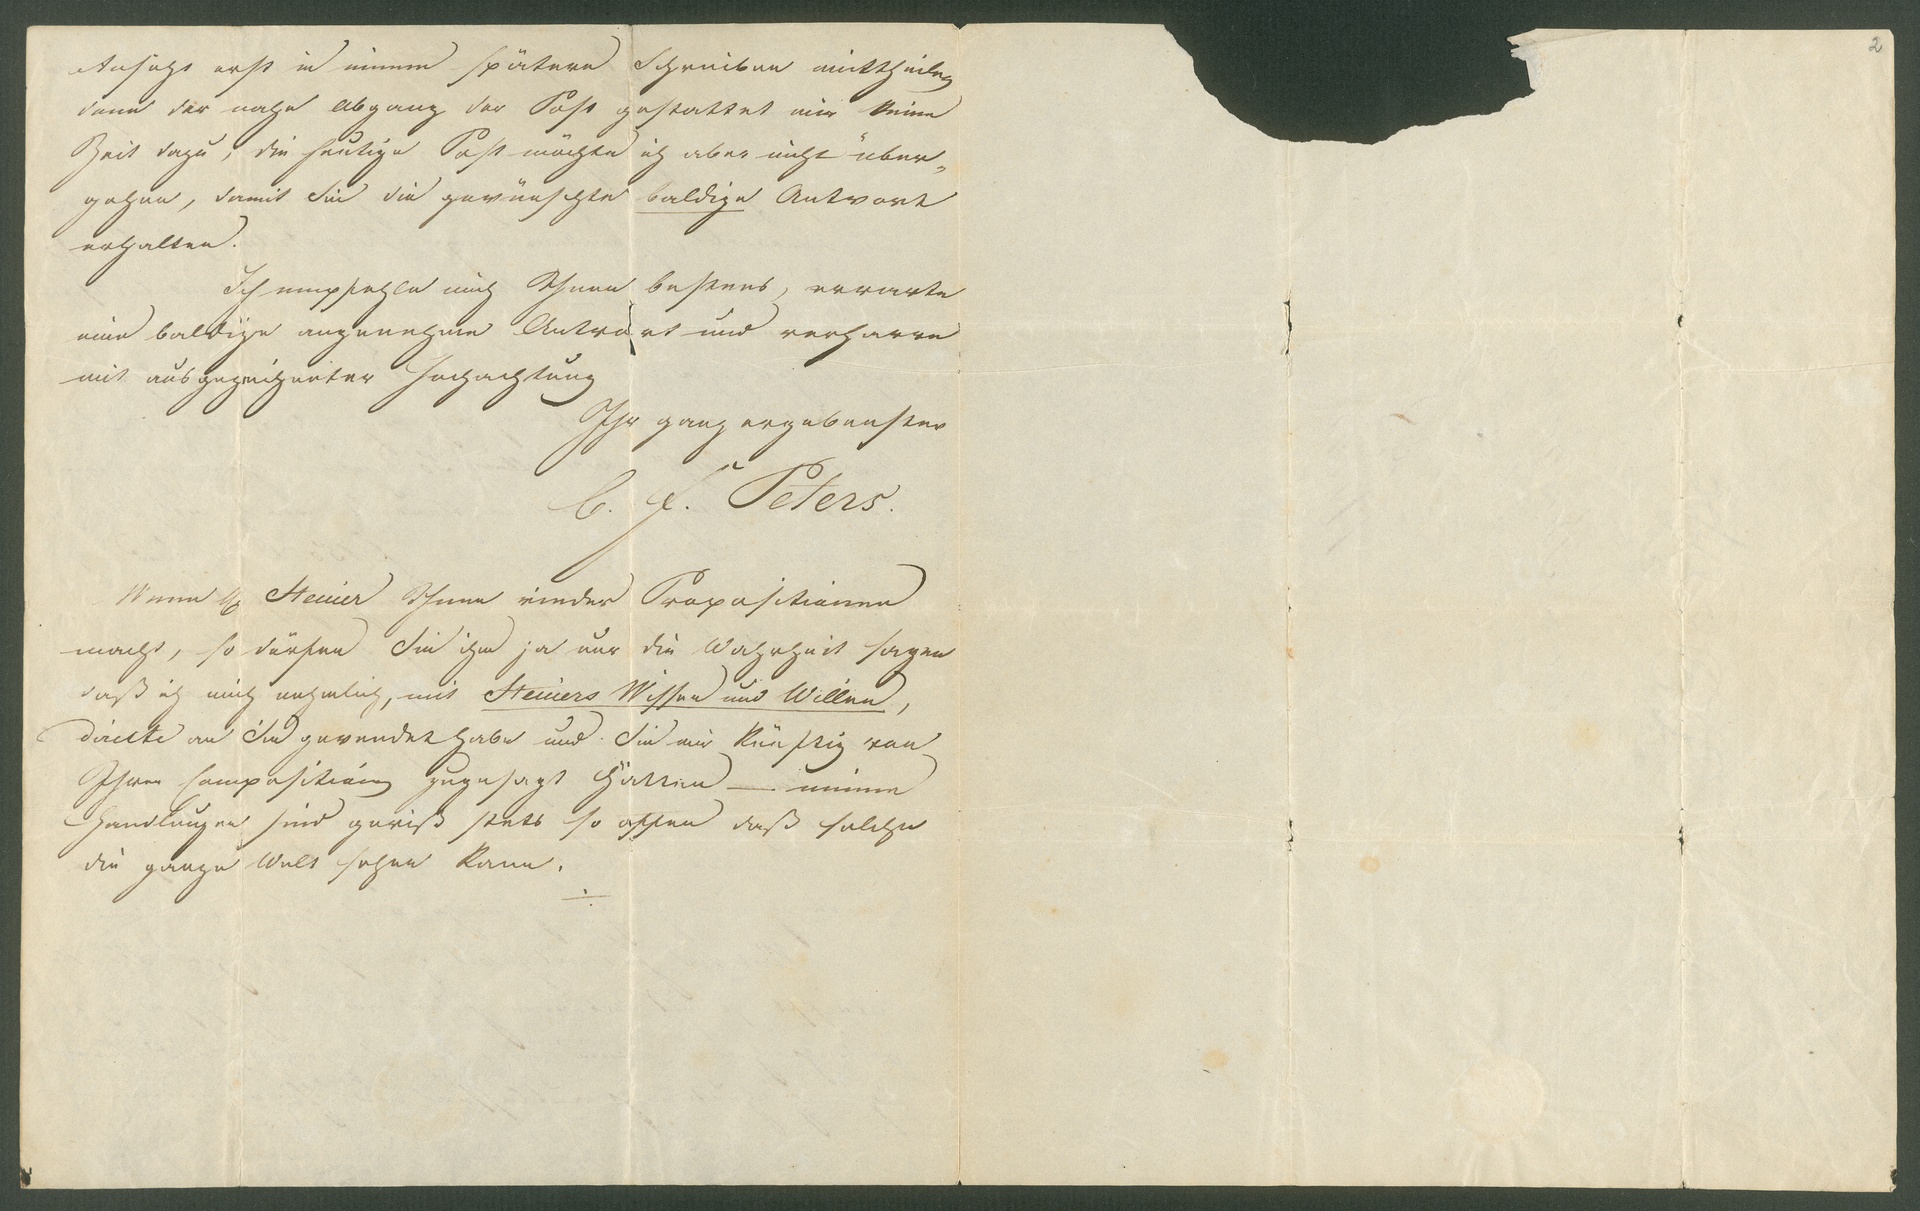 2
Ansicht erst in einem spätern Schreiben mittheilen
denn der nahe Abgang der Post gestattet mir keine
Zeit dazu, die heutige Post möchte ich aber nicht über„
gehen, damit Sie die gewünschte baldige Antwort
erhalten.
Ich empfehle mich Ihnen bestens, erwarte
eine baldige angenehme Antwort und verharre
mit ausgezeichneter Hochachtung
Ihr ganz ergebenster
C. F. Peters.
Wenn H Steiner Ihnen wieder Propositionen
macht, so dürfen Sie ihm ja nur die Wahrheit sagen
daß ich mich nehmlich, mit Steiners Wissen und Willen,
directe an Sie gewendet habe und Sie mir künftig von
Ihren Compositionen zugesagt hätten — meine
Handlungen sind gewiß stets so offen daß solche
die ganze Welt sehen kann.